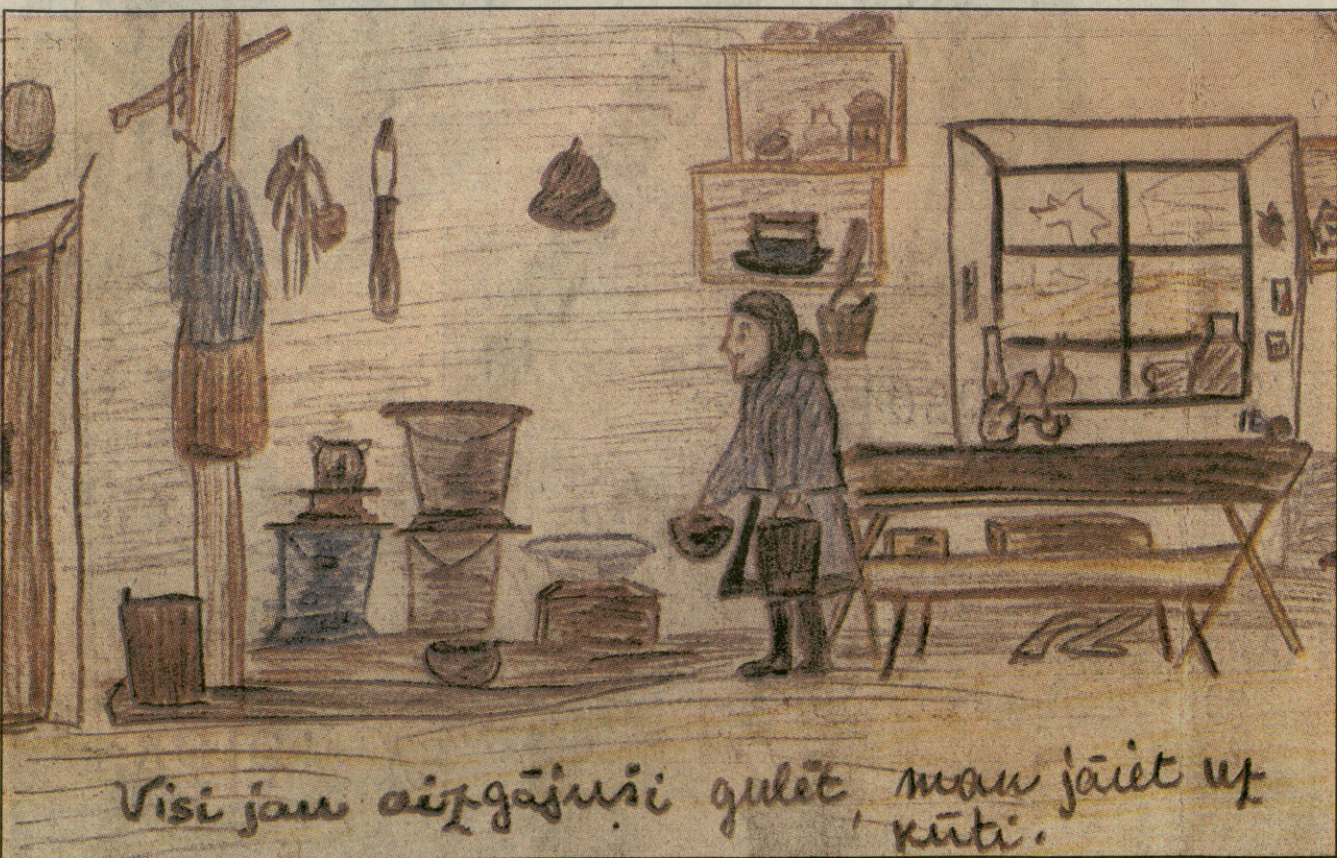 Visi jau aizgājuši gulēt, man jāiet uz
kūti.